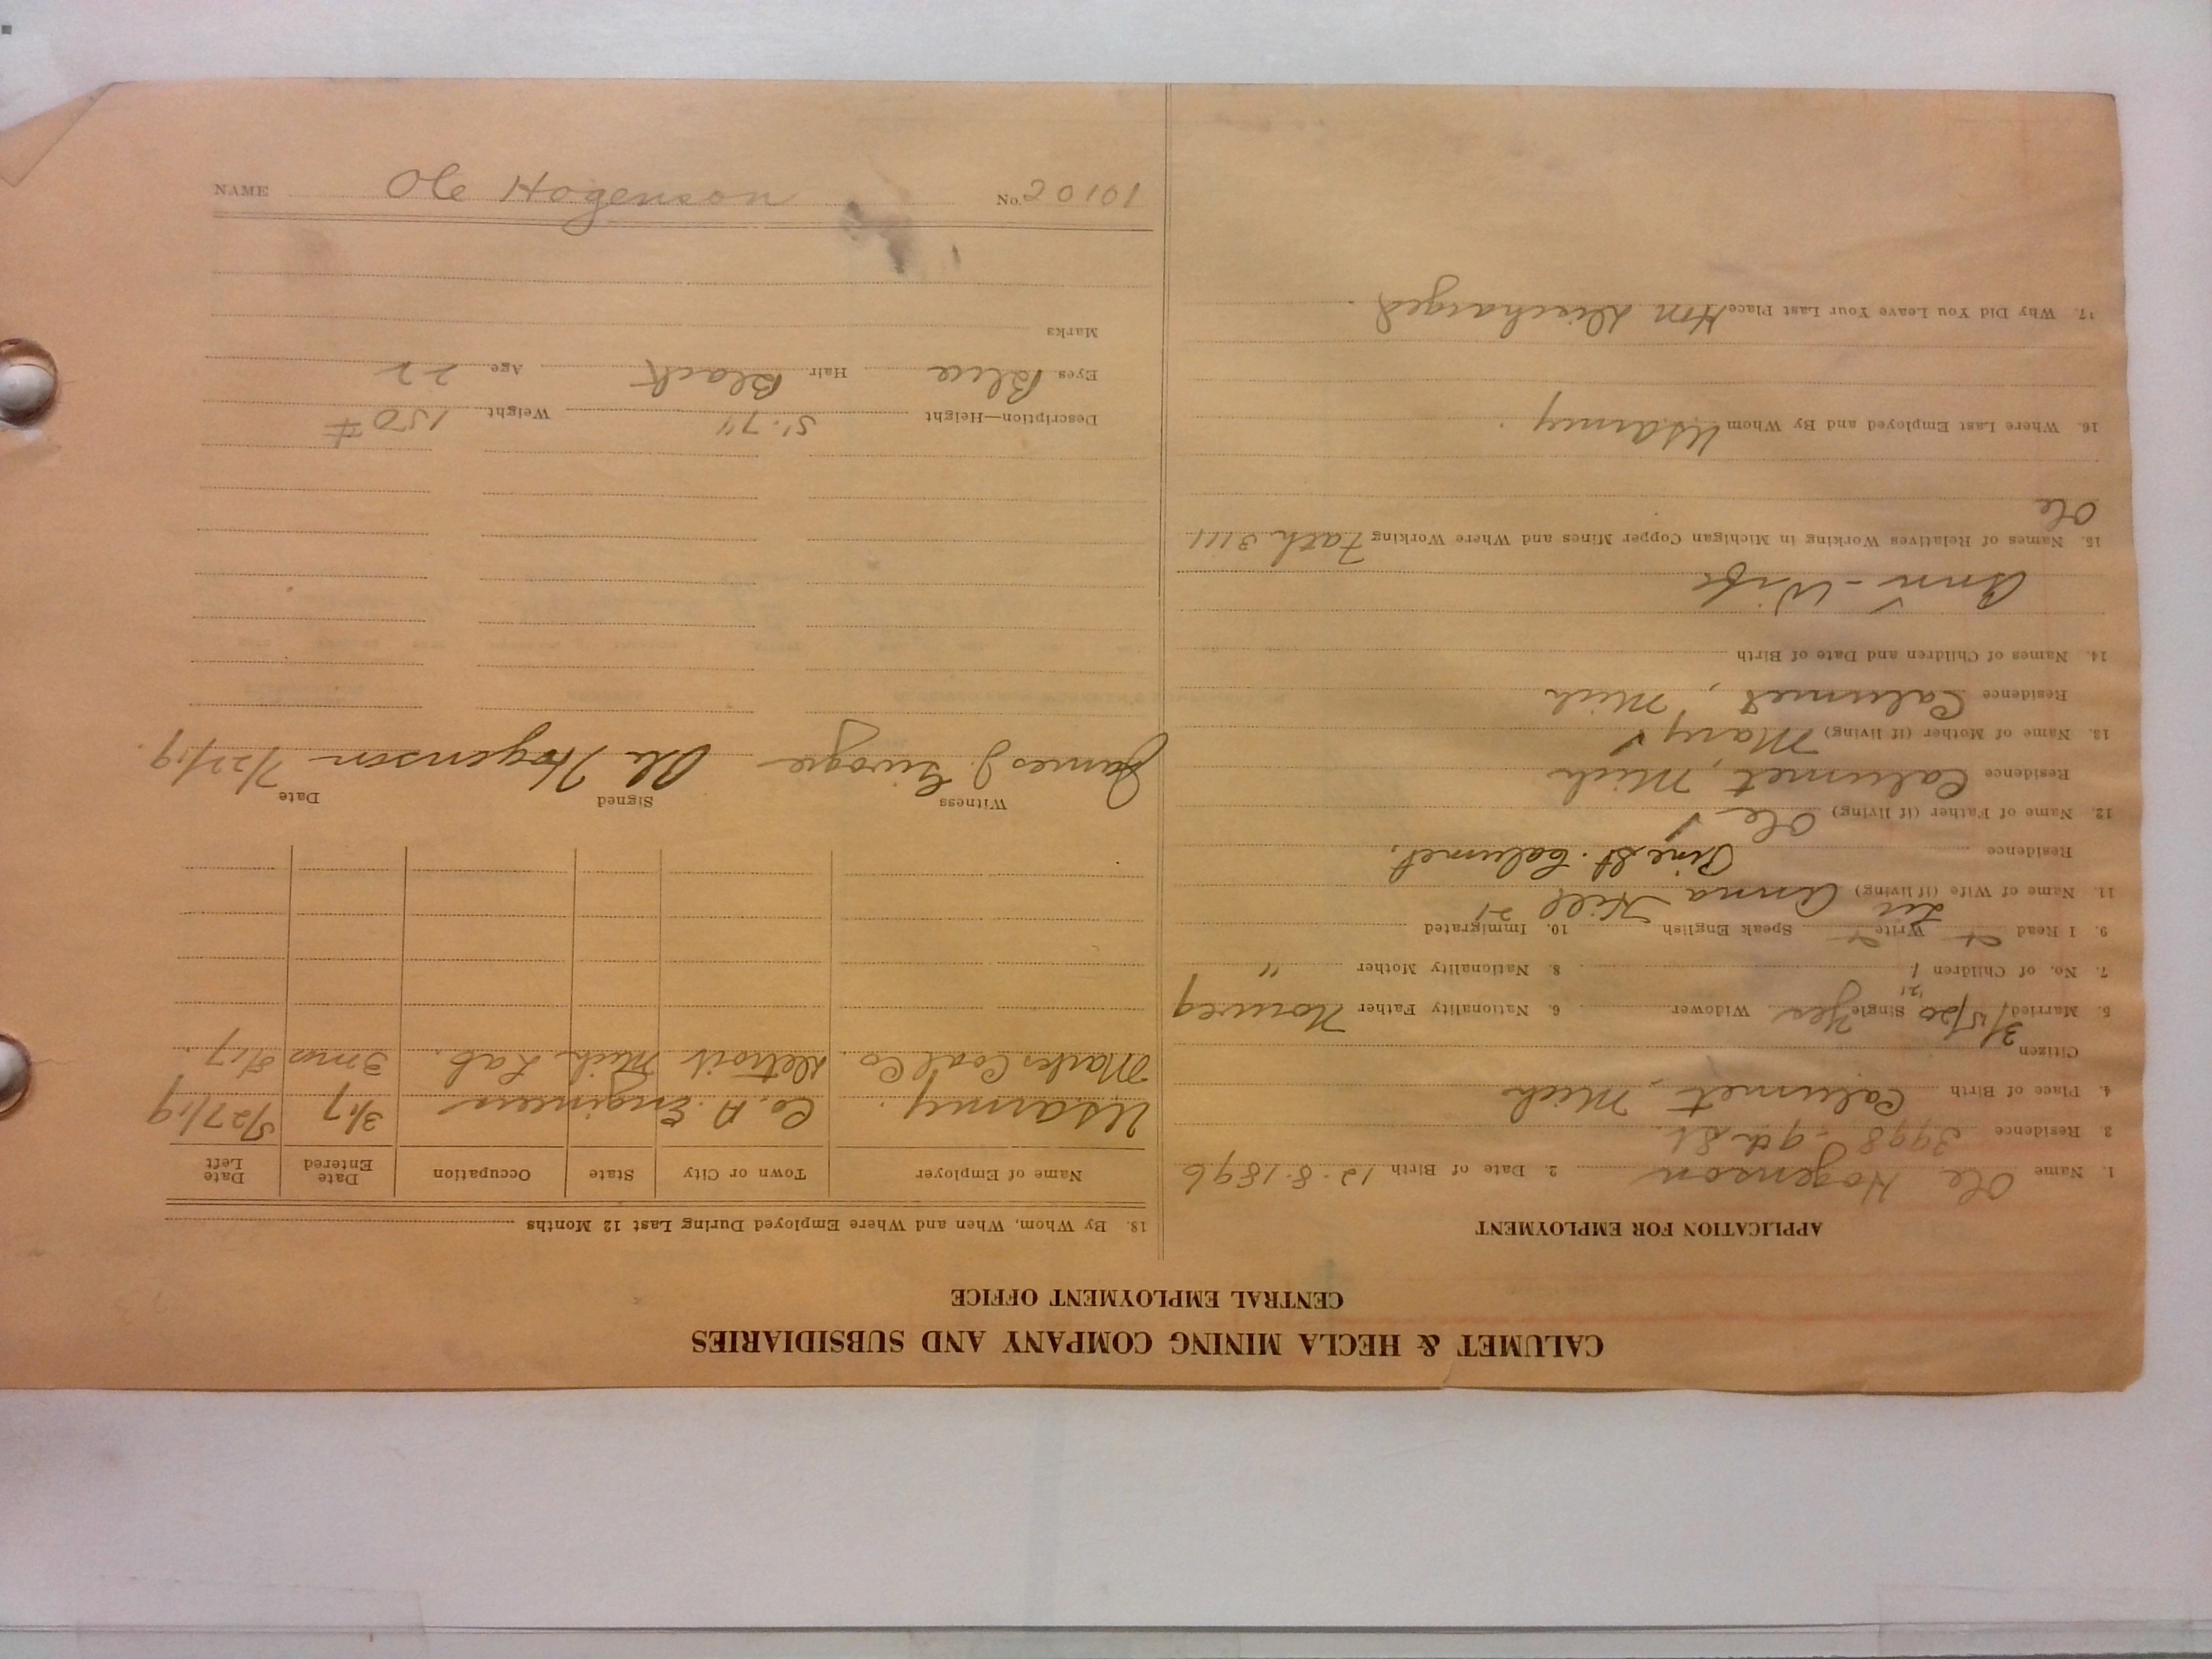 CALUMET & HECLA MINING COMPANY AND SUBSIDIARIES
CENTRAL EMPLOYMENT OFFICE
APPLICATION FOR EMPLOYMENT
1. Name Ole Hogenson 2. Date of Birth 12.8.1896
3. Residence 3998-9th St.
4. Place of Birth Calumet, Mich
Citizen
5. Married 3/15/20 '21 Single Yes Widower 6. Nationality Father Norweg
7. No. of Children 1 8. Nationality Mother "
9. I Read Write Speak English 10. Immigrated
11. Name of Wife (if living) Anna Hill 21
Residence Pine St. Calumet.
12. Name of Father (if living) Ole
Residence Calumet, Mich
13. Name of Mother (if living) Mary
Residence Calumet, Mich
14. Names of Children and Date of Birth
Ann - Wife
15. Names of Relatives Working in Michigan Copper Mines and Where Working Fath 3111
Ole
16. Where Last Employed and By Whom US Army
17. Why Did You Leave Your Last Place Hon Discharged.
18. By Whom, When and Where Employed During Last 12 Months
Name of Employer Town or City State Occupation Date Entered Date Left
US Army. Co. A. Engineers 3/17 5/27/19
Marks Coal Co. Detroit Mich. Lab. 3 mos 8/17.
Witness Signed Date
James J. Ole Hogenson 7/22/19.
Description—Height 5'.7" Weight 150 #
Eyes Blue Hair Black Age 22
Marks
NAME Ole Hogenson No. 20101